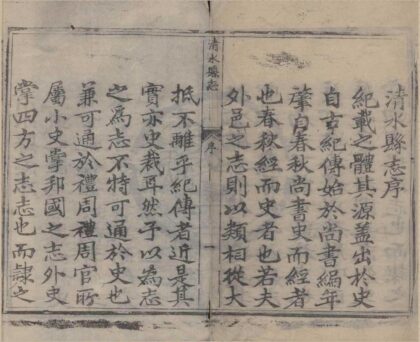 清水縣志序
紀載之體其源蓋出於史
自古紀傳始於尚書編年
肇自春秋尚書史而經者
也春秋經而史者也若夫
外邑之志則以類相從大
清水縣志
序
一
抵不離乎紀傳者近是其
實亦史裁耳然予以為志
之為志不特可通於史也
兼可通於禮周禮周官所
屬小史掌邦國之志外史
掌四方之志志也而隸之